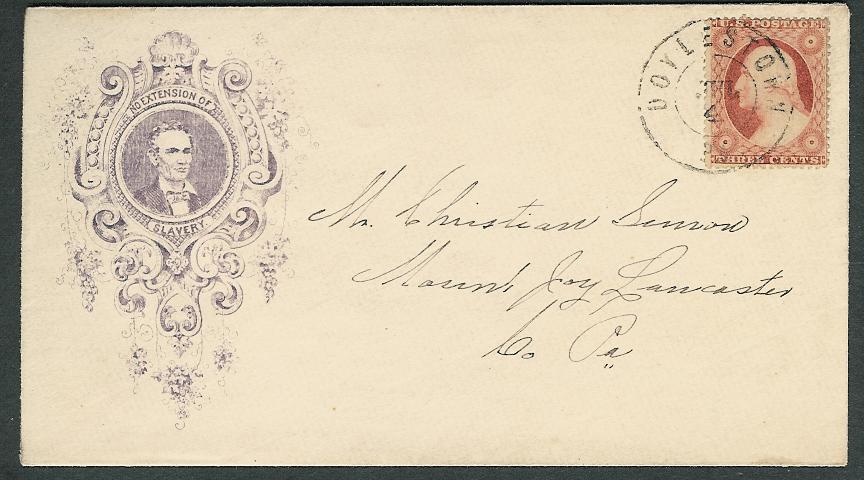 NO EXTENSION OF
SLAVERY.
DOYLESTOWN
U.S. POSTAGE
THREE CENTS
Mr. Christian
Mount Joy Lancaster
Co Pa